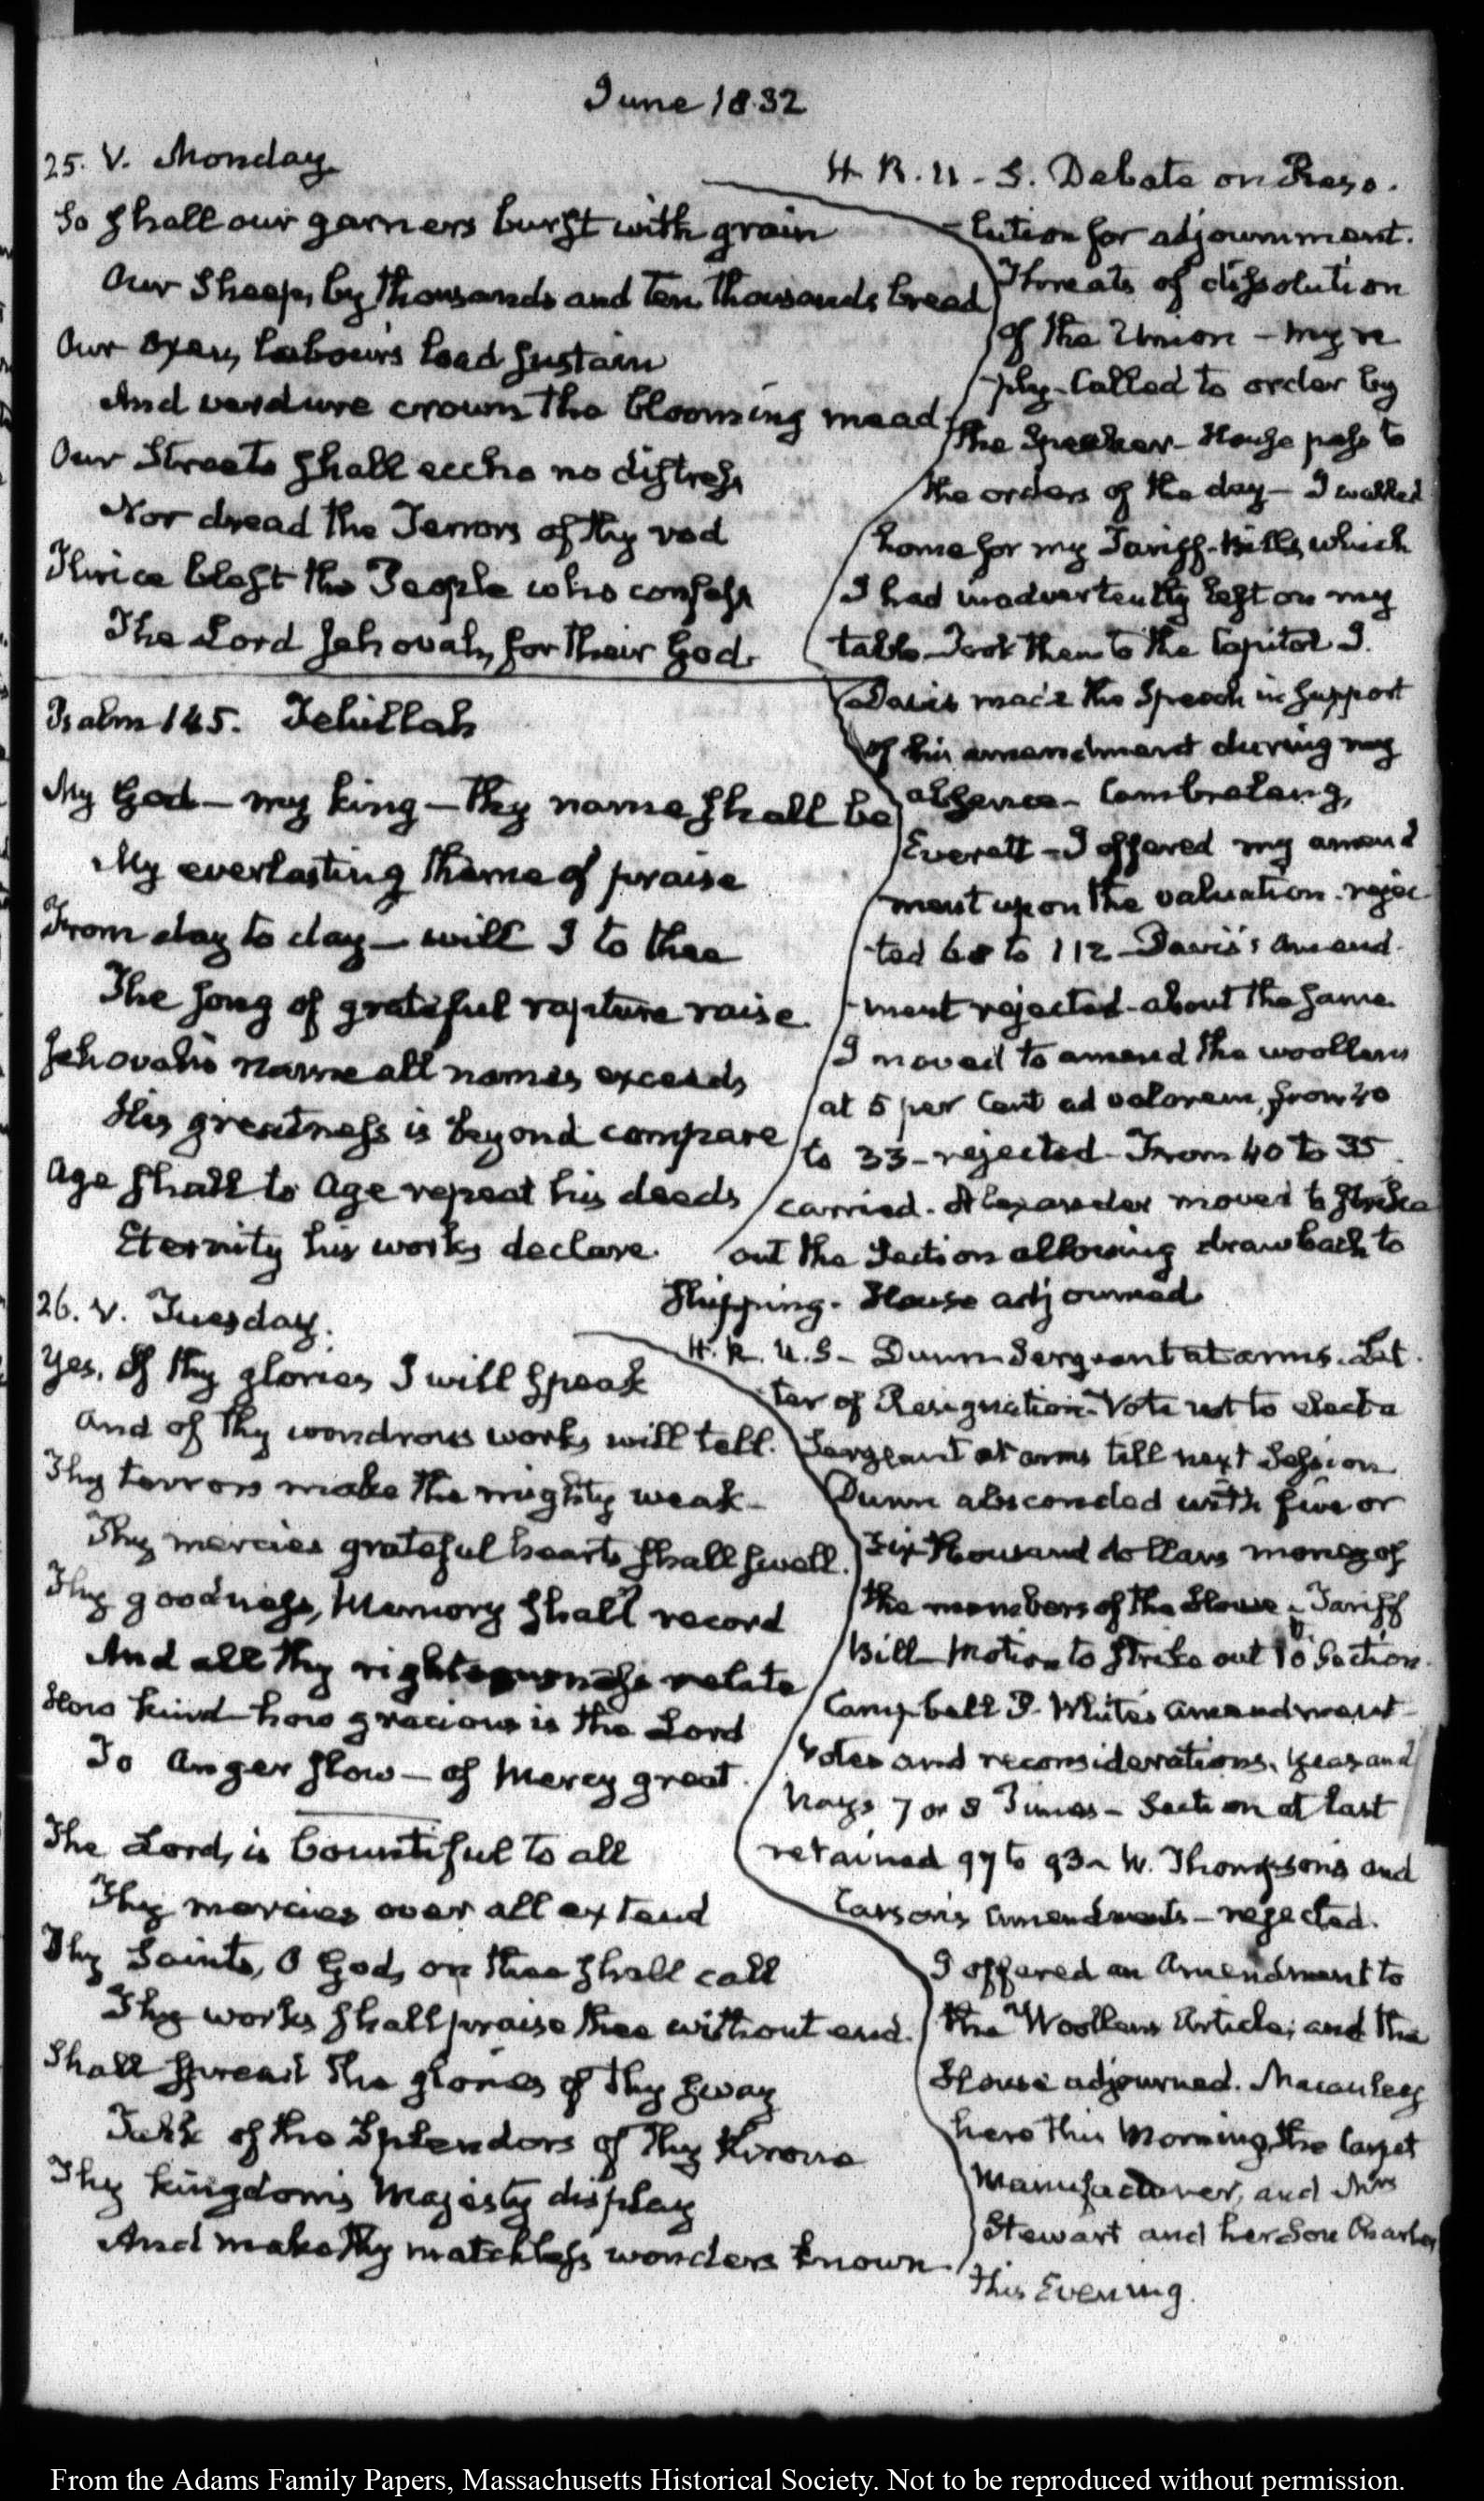 June 1832
25. V. Monday
So shall our garners burst with grain
Our Sheep, by thousands and ten thousands breed
Our oxen, labour's load sustain
And verdure crown the blooming mead
Our Streets shall eccho no distress
Nor dread the Terrors of thy rod
Thrice blest the People who confess
The Lord Jehovah, for their God.
Psalm 145. Tehillah
My God — my king — thy name shall be
My everlasting theme of praise
From day to day — will I to thee
The song of grateful rapture raise.
Jehovah's name all names exceeds
His greatness is beyond compare
Age shall to Age repeat his deeds
Eternity his works declare.
H. R. U. S. Debate on Reso-
-lution for adjournment.
Threats of dissolution
of the Union — my re
-ply. Called to order by
the Speaker — House pass to
the orders of the day — I walked
home for my Tariff-Bills, which
I had inadvertently left on my
table. Took them to the Capitol. J.
Davis made the Speech in support
of his amendment during my
absence. Cambreleng,
Everett — I offered my amend
ment upon the valuation. rejec
-ted 68 to 112 — Davis's Amend-
-ment rejected — about the same.
I moved to amend the woollens
at 5 per Cent ad valorem, from 40
to 33 — rejected — From 40 to 35
carried. Alexander moved to strike
out the Section allowing drawback to
Shipping. House adjourned.
26. V. Tuesday.
Yes, of thy glories I will speak
And of thy wondrous works will tell.
Thy terrors make the mighty weak —
Thy mercies grateful hearts shall swell.
Thy goodness, Memory shall record
And all thy righteousness relate
How kind — how gracious is the Lord
To Anger slow — of Mercy great.
The Lord, is bountiful to all
Thy mercies over all extend
Thy Saints, O God, on thee shall call
Thy works shall praise thee without end.
Shall spread the glories of thy sway
Talk of the Splendors of thy throne
Thy kingdom's Majesty display
And make thy matchless wonders known.
H. R. U. S — Dunn Sergeant at arms. Let-
-ter of Resignation. Vote not to elect a
Sergeant at arms till next Session
Dunn absconded with five or
Six thousand dollars money of
the members of the House. Tariff
Bill — Motion to strike out 10th Section.
Campbell P. White's Amendment —
Votes and reconsiderations, yeas and
Nays 7 or 8 Times — Section at last
retained 97 to 93 — W. Thompson's and
Carson's Amendments — rejected.
I offered an Amendment to
the Woollens Article; and the
House adjourned. Macauley
here this Morning, the Carpet
Manufacturer, and Mrs
Stewart and her Son Charles
this Evening.
From the Adams Family Papers, Massachusetts Historical Society. Not to be reproduced without permission.